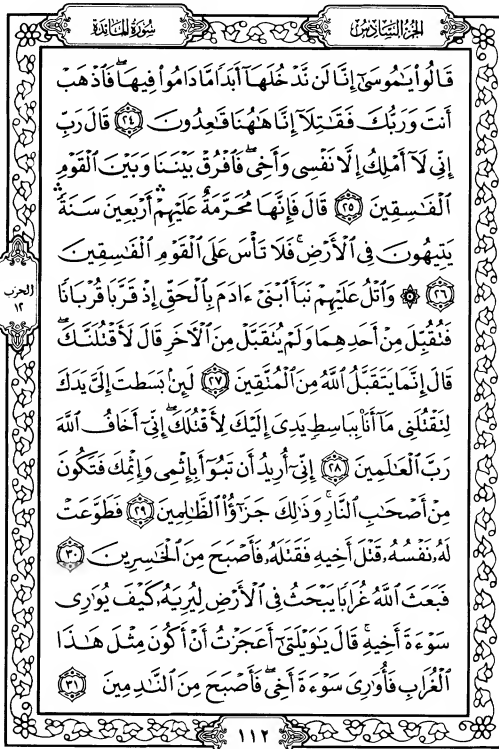 الجزء السادس
سورة المائدة
قَالُوا۟ يَـٰمُوسَىٰٓ إِنَّا لَن نَّدْخُلَهَآ أَبَدًا مَّا دَامُوا۟ فِيهَا ۖ فَٱذْهَبْ
أَنتَ وَرَبُّكَ فَقَـٰتِلَآ إِنَّا هَـٰهُنَا قَـٰعِدُونَ ٢٤ قَالَ رَبِّ
إِنِّى لَآ أَمْلِكُ إِلَّا نَفْسِى وَأَخِى ۖ فَٱفْرُقْ بَيْنَنَا وَبَيْنَ ٱلْقَوْمِ
ٱلْفَـٰسِقِينَ ٢٥ قَالَ فَإِنَّهَا مُحَرَّمَةٌ عَلَيْهِمْ ۛ أَرْبَعِينَ سَنَةً ۛ
يَتِيهُونَ فِى ٱلْأَرْضِ ۚ فَلَا تَأْسَ عَلَى ٱلْقَوْمِ ٱلْفَـٰسِقِينَ
٢٦ ۞ وَٱتْلُ عَلَيْهِمْ نَبَأَ ٱبْنَىْ ءَادَمَ بِٱلْحَقِّ إِذْ قَرَّبَا قُرْبَانًا
الحزب
١٢
فَتُقُبِّلَ مِنْ أَحَدِهِمَا وَلَمْ يُتَقَبَّلْ مِنَ ٱلْـَٔاخَرِ قَالَ لَأَقْتُلَنَّكَ ۖ
قَالَ إِنَّمَا يَتَقَبَّلُ ٱللَّهُ مِنَ ٱلْمُتَّقِينَ ٢٧ لَئِنۢ بَسَطتَ إِلَىَّ يَدَكَ
لِتَقْتُلَنِى مَآ أَنَا۠ بِبَاسِطٍ يَدِىَ إِلَيْكَ لِأَقْتُلَكَ ۖ إِنِّىٓ أَخَافُ ٱللَّهَ
رَبَّ ٱلْعَـٰلَمِينَ ٢٨ إِنِّىٓ أُرِيدُ أَن تَبُوٓأَ بِإِثْمِى وَإِثْمِكَ فَتَكُونَ
مِنْ أَصْحَـٰبِ ٱلنَّارِ ۚ وَذَٰلِكَ جَزَٰٓؤُا۟ ٱلظَّـٰلِمِينَ ٢٩ فَطَوَّعَتْ
لَهُۥ نَفْسُهُۥ قَتْلَ أَخِيهِ فَقَتَلَهُۥ فَأَصْبَحَ مِنَ ٱلْخَـٰسِرِينَ ٣٠
فَبَعَثَ ٱللَّهُ غُرَابًا يَبْحَثُ فِى ٱلْأَرْضِ لِيُرِيَهُۥ كَيْفَ يُوَٰرِى
سَوْءَةَ أَخِيهِ ۚ قَالَ يَـٰوَيْلَتَىٰٓ أَعَجَزْتُ أَنْ أَكُونَ مِثْلَ هَـٰذَا
ٱلْغُرَابِ فَأُوَٰرِىَ سَوْءَةَ أَخِى ۖ فَأَصْبَحَ مِنَ ٱلنَّـٰدِمِينَ ٣١
١١٢